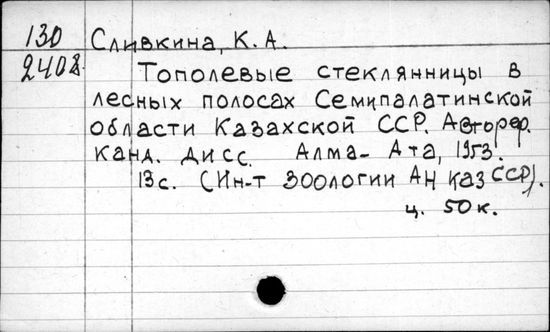 130 Сливкина, К. А.
2408 Тополевые стеклянницы в
лесных полосах Семипалатинской
области Казахской ССР. Автореф.
канд. дисс. Алма-Ата, 1953.
13с. (Ин-т зоологии АН КазССР).
ц. 50к.